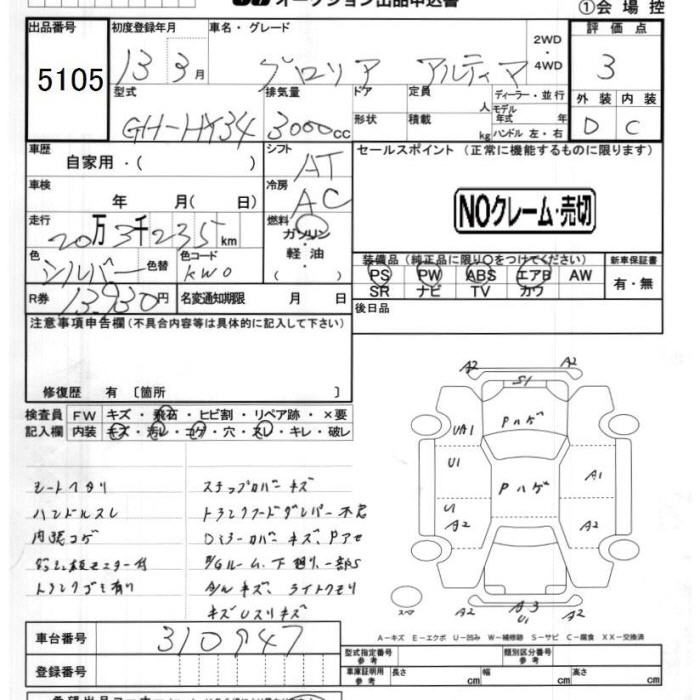 オークション出品申込書
①会場控
出品番号 初度登録年月 車名・グレード 評価点
5105 13 3月 グロリア アルティマ 2WD・4WD 3
型式 排気量 ドア 定員 人 ディーラー・並行 外装 内装
GH-HY34 3000cc 形状 積載 kg モデル年式 年 ハンドル 左・右 D C
車歴 自家用・( ) シフト AT セールスポイント (正常に機能するものに限ります)
車検 年 月( 日) 冷房 AC
NOクレーム・売切
走行 20万3千235km 燃料 ガソリン・軽油・( )
色 シルバー 色替 色コード KW0
装備品(純正品に限り○をつけてください) 新車保証書
PS PW ABS エアB AW 有・無
SR ナビ TV カワ
R券 13,930円 名変通知期限 月 日
後日品
注意事項申告欄(不具合内容等は具体的に記入して下さい)
修復歴 有 〔箇所 〕
検査員 FW キズ・飛石・ヒビ割・リペア跡・×要
記入欄 内装 キズ・汚レ・コゲ・穴・スレ・キレ・破レ
シートヘタリ
ハンドルスレ
内張コゲ
トランクゴミ有り
ステップカバーキズ
トランクフードダンパー不良
ルーム、下廻り、一部S
キズ、ライトクモリ
A2 A2
S1
Pハゲ
UA1
U1
Pハゲ
A1
U
A2 A2
スペア
A2 A3 A2
U1
A-キズ E-エクボ U-凹み W-補修跡 S-サビ C-腐食 XX-交換済
車台番号 310947
登録番号
型式指定番号 参考 類別区分番号 参考
車庫証明用 参考 長さ cm 幅 cm 高さ cm